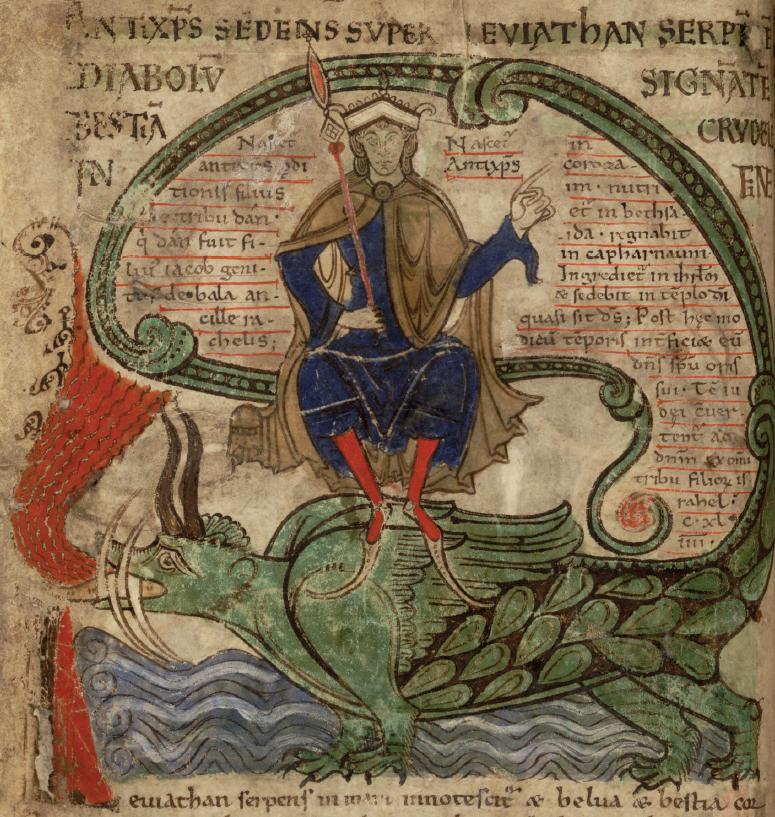 ANTIXP̅S SEDENS SVPER LEVIATHAN SERPE
DIABOLŪ SIGNĀTĒ
BESTIĀ CRVDEL
IN FINE
Nascet᷑
antixp̅s ꝑdi
tionis filius
de tribu dan·
q̇ dan fuit fi-
lius iacob geni-
de bala an-
cille ra-
chelis;
Nascet᷑
Antixp̅s
in
coroza-
im· nutri
et᷑ in bethsa-
ida· regnabit
in capharnaum·
Ingrediet᷑ in ihrl̅m
& sedebit in tēplo di̅
quasi sit ds̅; Post hęc mo
dicū tēporis int̅ficiæ eū
dn̅s spū oris
sui·
dn̅m ex om̅i
tribu filioꝝ isr̅
rahel·
c·xl·
iiii·
euiathan serpens in mari innotescit᷑ & belua & bestia